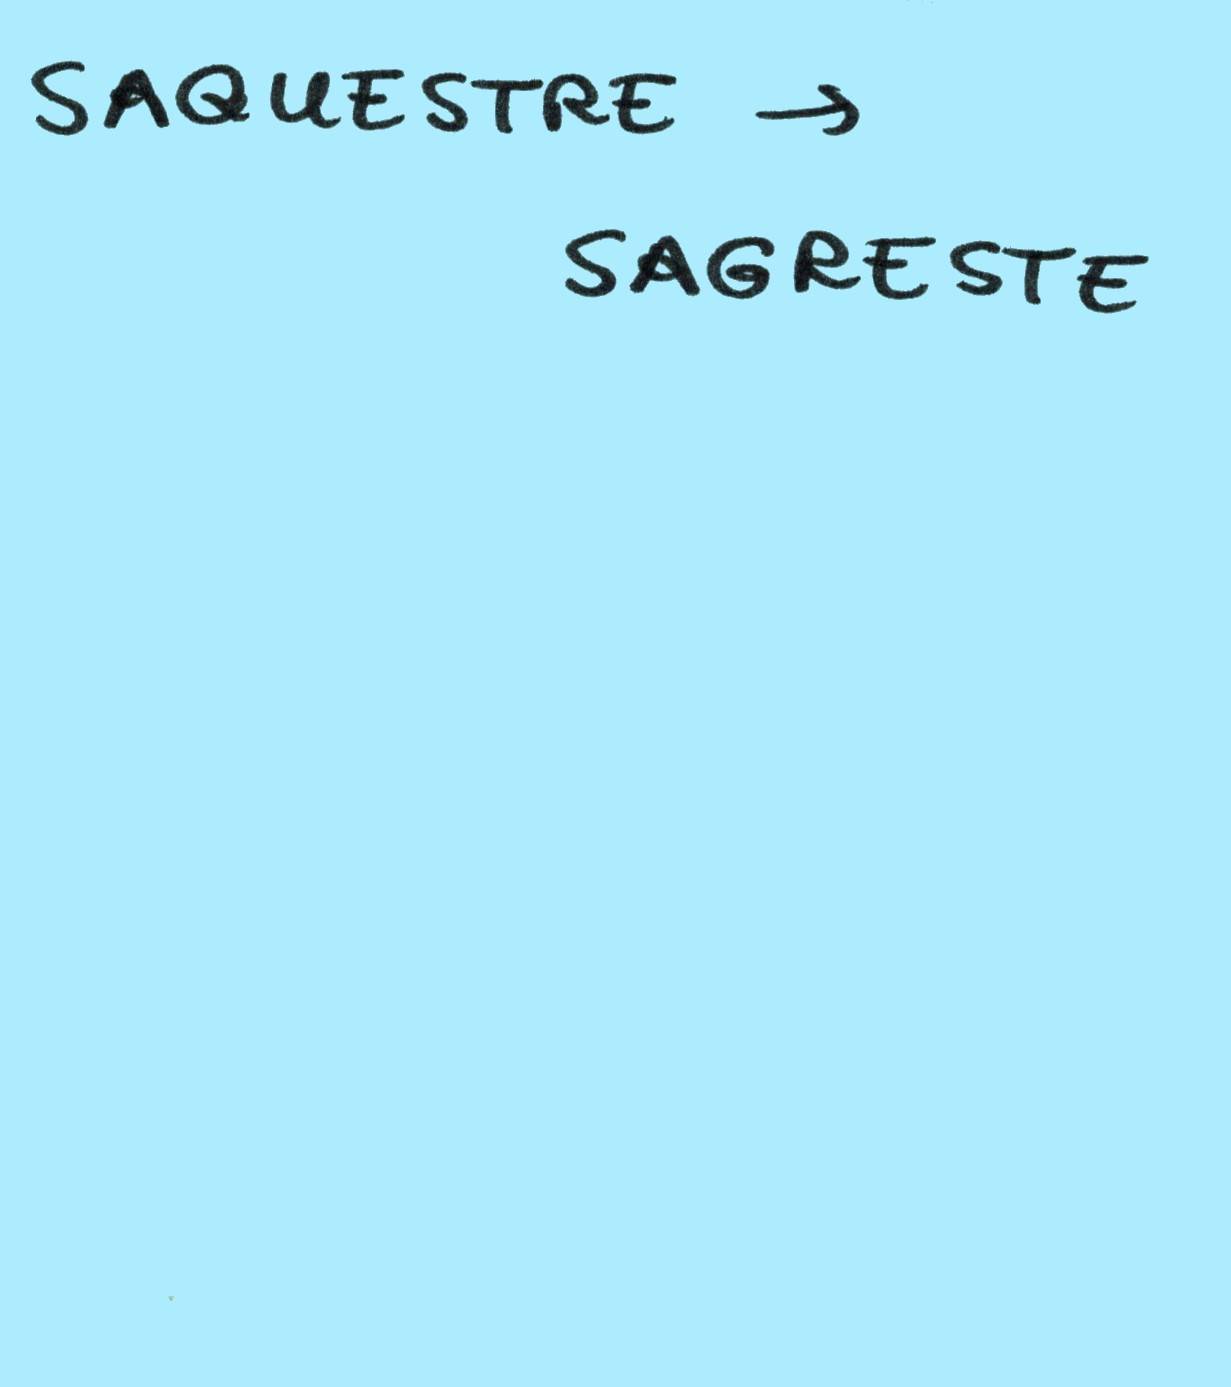 SAQUESTRE →
SAGRESTE